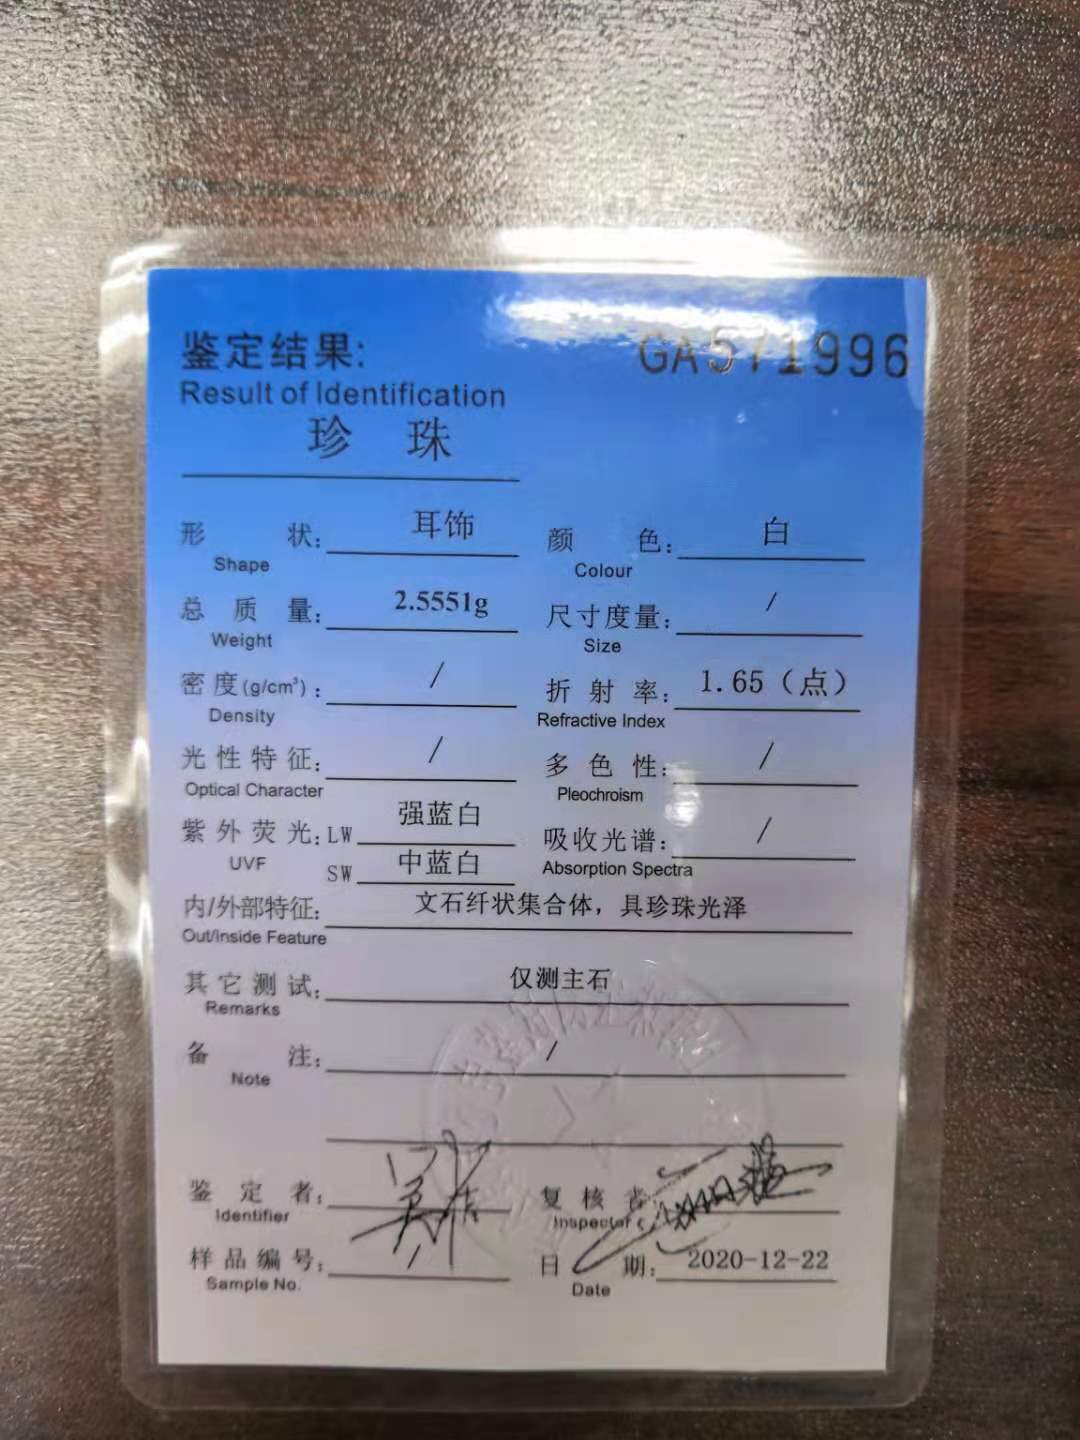 鉴定结果:
GA571996
Result of Identification
珍 珠
形 状: 耳饰
Shape
颜 色: 白
Colour
总 质 量: 2.5551g
Weight
尺寸度量: /
Size
密度(g/cm³): /
Density
折 射 率: 1.65（点）
Refractive Index
光性特征: /
Optical Character
多 色 性: /
Pleochroism
紫外荧光: LW 强蓝白
UVF
SW 中蓝白
吸收光谱: /
Absorption Spectra
内/外部特征: 文石纤状集合体，具珍珠光泽
Out/Inside Feature
其它测试: 仅测主石
Remarks
备 注: /
Note
鉴 定 者:
Identifier
复 核 者
Inspector
样品编号:
Sample No.
日 期: 2020-12-22
Date